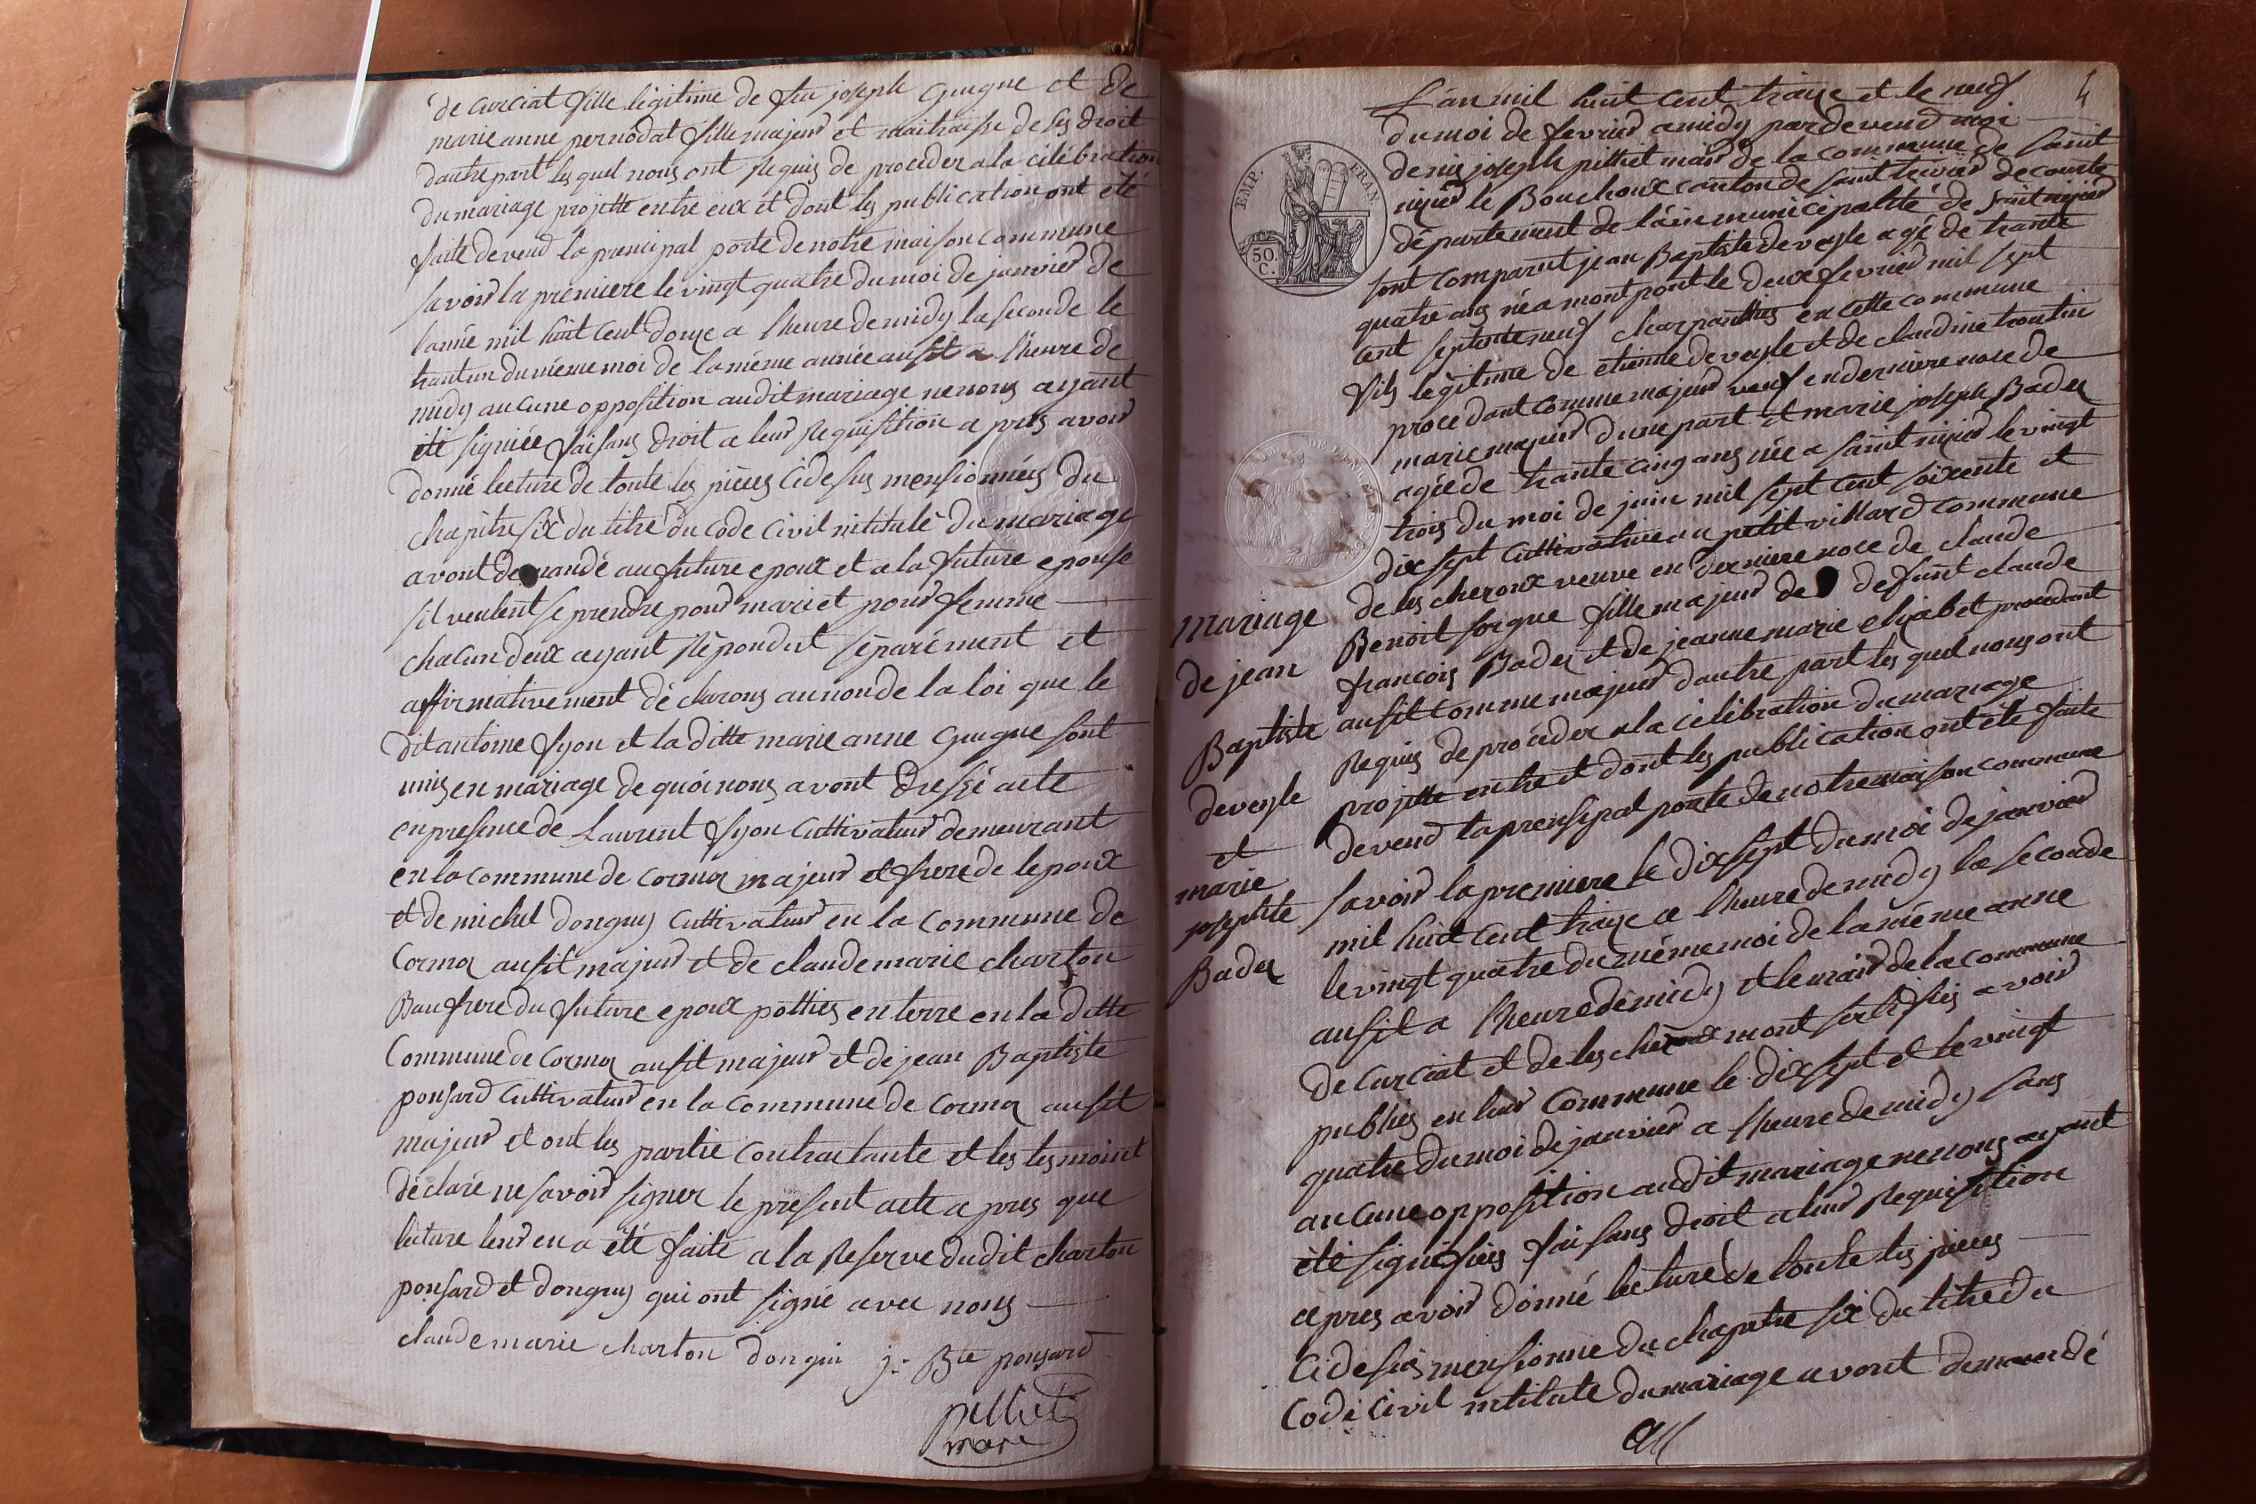 de curciat fille légitime de feu joseph guigue et de
marie anne pernodat fille majeur et maitraisse de ses droit
dautre part les quel nous ont requis de proceder a la célébration
du mariage projetté entre eux et dont les publication ont été
faite devend la principal porte de notre maison commune
savoir la premiere le vingt quatre du moi de janvier de
lanné mil huit cent douze a lheure de midy la seconde le
trantun du méme moi de la méme année aussit a lheure de
midy aucune opposition audit mariage ne nous ayant
été signiée faisans droit a leur requisition a pres avoir
donné lecture de toute les pièces cidesus mensionnées du
chapitre six du titre du code civil intitulé du mariage
avont demandé au future epoux et a la future epouse
sil veulent se prendre pour mari et pour femme
chacun deux ayant répondut séparément et
affirmativement déclarons au non de la loi que le
dit antoine fyon et la ditte marie anne guigue sont
unis en mariage de quoi nous avont dressé acte
en presence de Laurent fyon cultivateur demeurant
en la commune de cormoz majeur et frere de lepoux
et de michel donguy cultivateur en la commune de
Cormoz aussit majeur et de claude marie charton
Bau frere du future epoux pottier en terre en la ditte
Commune de cormoz aussit majeur et de jean Baptiste
ponsard cultivateur en la commune de cormoz aussit
majeur et ont les partie contractante et les tesmoint
déclaré ne savoir signer le présent acte a pres que
lecture leur en a été faite a la reserve dudit charton
ponsard et donguy qui ont signé avec nous
claude marie charton donguy j. Bte ponsard
pilliet
maire
4
L'an mil huit cent traize et le neuf
du moi de fevrier a midy pardevend moi
denis joseph pilliet mair de la commune de saint
nizier le Bouchoux canton de saint trivier de courte
département de l'ain municipalité de saint nizier
sont comparut jean Baptiste deveyle agé de trante
quatre ans né a montpont le deux fevrier mil sept
cent septente neuf charpanttier en cette commune
fils légitime de etienne deveyle et de claudine trontin
procedant comme majeur veuf en derniere noce de
marie majeur dune part et marie joseph Badez
agée de trante cinq ans née a saint nizier le vingt
trois du moi de juin mil sept cent soixente et
dix sept cultivatrice au petit villard commune
de les cheroux veuve en derniere noce de claude
Benoit sorgue fille majeur de defunt claude
françois Badez et de jeanne marie elizabet procedant
aussit comme majeur dautre part les quel nous ont
requis de procéder a la célébration du mariage
projetté entre et dont les publication ont été faite
devend la prensipal porte de notre maison commune
savoir la premiere le dix sept du moi de janvier
mil huit cent traize a lheure de midy la seconde
le vingt quatre du méme moi de la méme anne
aussit a lheure de midy et le mair de la commune
de curciat et de les cheroux mont sertifies avoir
publies en leur commune le dix sept et le vingt
quatre du moi de janvier a lheure de midy sans
aucune opposition audit mariage ne nous ayant
été signifiées faisans droit a leur requisition
a pres avoir donné lecture de toute les pieces
cidesus mensionne du chapitre six du titre du
code civil intitule du mariage avont demandé
EMP. FRAN.
50.
C.
mariage
de jean
Baptiste
deveyle
et
marie
josephte
Badez